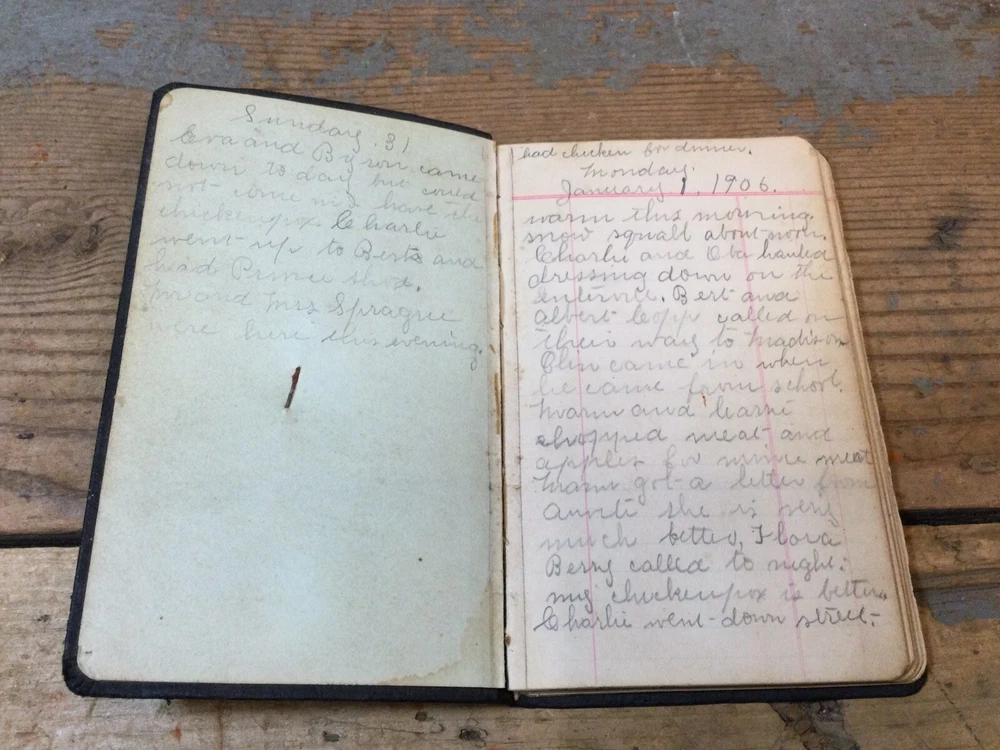 Sunday 31
Eva and Byron came
down to day but could
not come in I have the
chickenpox Charlie
went up to Berts and
had Prince shod.
Mr and Mrs Sprague
were here this evening.
had chicken for dinner.
Monday
January 1, 1906.
warm this morning.
snow squall about noon.
Charlie and Ota hauled
dressing down on the
entervale. Bert and
Albert Copp called on
their way to Madison
Clin came in when
he came from school.
Mam and
chopped meat and
apples for mince meat
Mam got a letter from
Aunti she is very
much better, Flora
Berry called to night.
my chickenpox is better.
Charlie went down street.